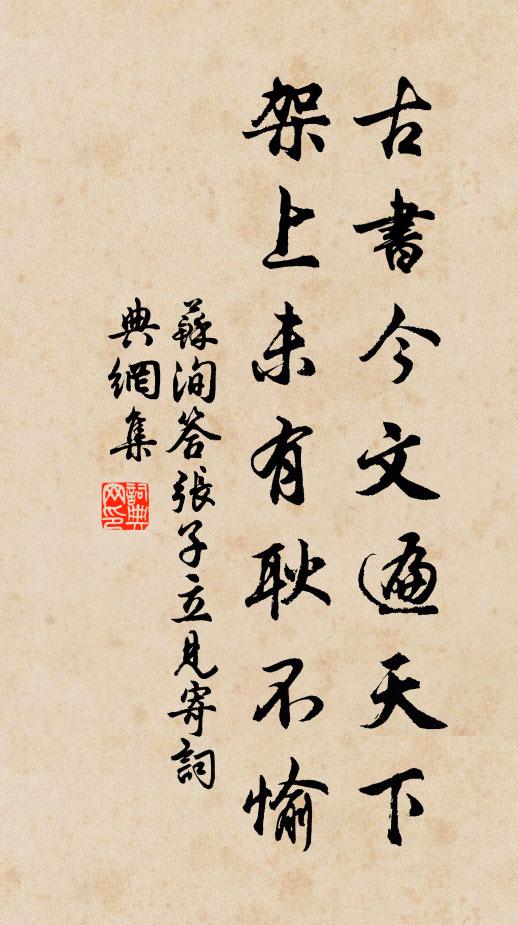 古書今文遍天下
架上未有耿不愉
蘇洵答張子立見寄詞
典網集
詞典
网印